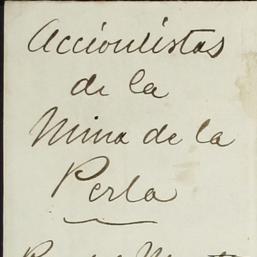 Accionistas
de la
Mina de la
Perla